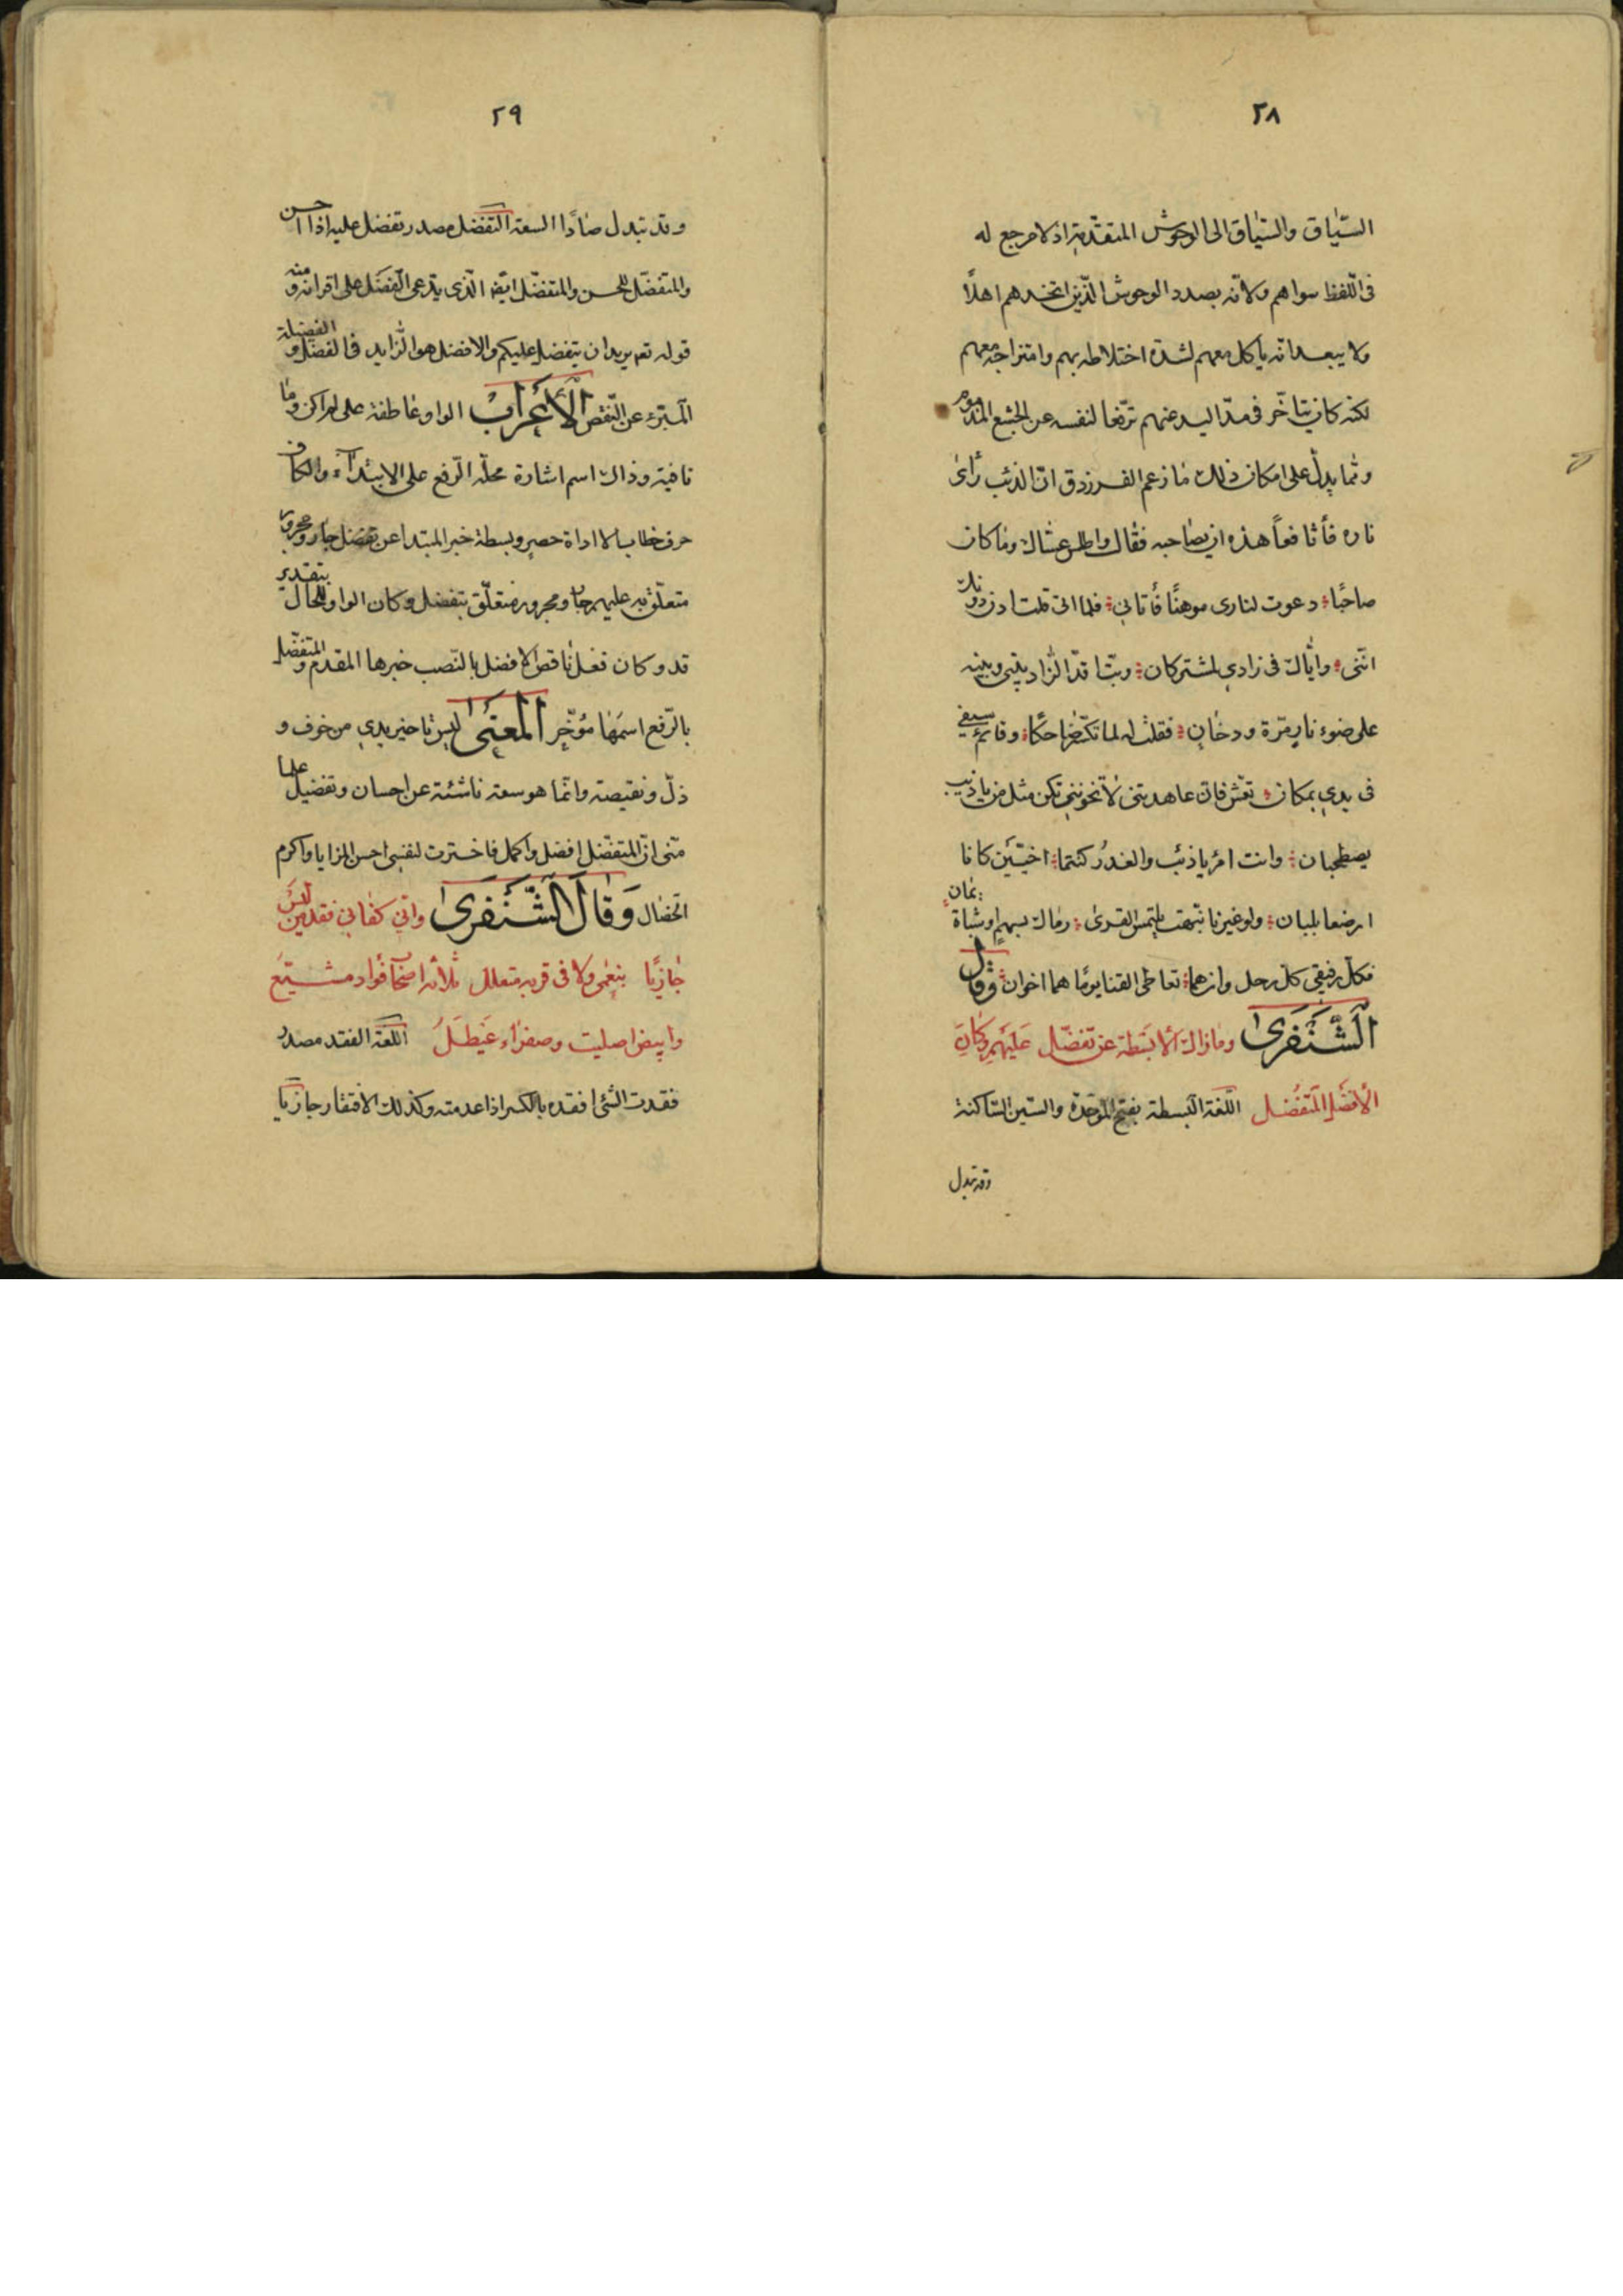 ٢٨
السّياق والسّياق الى الوحوش المتقدّمة اذ لا مرجع له
فى اللّفظ سواهم ولانّه بصدد الوحوش الّذين اتخذهم اهلاً
ولا يبعد انّه ياكل معهم لشدّة اختلاطه بهم وامتزاجه معهم
لكنه كان يتاخّر فى مدّ اليد عنهم ترفّعا لنفسه عن الجشع المذموم
وممّا يدلّ على امكان ذلك ما زعم الفرزدق انّ الذئب رأى
ناره فأتا فعاً هذه ان يصاحبه فقال واطلس عسّال وما كان
صاحبًا دعوت لنارى موهنًا فأتانى فلما اتى قلت ادن دونك
انّنى وايّاك فى زادي لمشتركان وبتّ اقدّ الزّاد بينى وبينه
على ضوء نار مرّة ودخان فقلت له لما تكشّر ضاحكًا وقائم سيفي
فى يدي بمكان تعش فان عاهدتنى لا تخوننى نكن مثل من يا ذئب
يصطحبان وانت امرؤ يا ذئب والغدر كنتما اخيّين كانا
ارضعا بلبان ولو غيرنا نبّهت تلتمس القرى رماك بسهم او شباة
سنان
فكل رفيقي كلّ رحل وان هما تعاطى القنا يومًا هما اخوان وقال
الشّنفرى وما ذاك الّا بسطة عن تفضّل عليهم وكان
الأفضل المتفضّل اللّغة البسطة بفتح الموحّدة والسّين السّاكنة
وقد تبدل
٢٩
وقد تبدل صادًا السعة التفضل مصدر تفضل عليه اذا احسن
والمتفضّل المحسن والمتفضّل ايضا الّذى يدّعى الفضل على اقرانه ومنه
قوله تع يريد ان يتفضل عليكم والافضل هو الزّايد فى الفضل والفضيلة
المبترّء عن النّقص الأعراب الواو عاطفة على لم اكن وما
نافية وذاك اسم اشارة محلّه الرّفع على الابتدآء والكاف
حرف خطاب الا اداة حصر وبسطة خبر المبتدا عن تفضل جار ومجرور
متعلّق به عليهم جار ومجرور متعلّق بتفضل وكان الواو للحال بتقدير
قد وكان فعل ناقص الافضل بالنّصب خبرها المقدم والمتفضّل
بالرّفع اسمها مؤخّر المعنى ليس تاخير يدي من خوف و
ذلّ ونقيصة وانّما هو سعة ناشئة عن احسان وتفضيل علما
منّى انّ المتفضّل افضل واكمل فاخترت لنفسى احسن المزايا واكرم
الخصال وقال الشّنفرى وانّي كفاني فقد من ليس
جازيًا بنعمى ولا فى قربه متعلل ثلاثة اصحاب فواد مشيّع
وابيض اصليت وصفراء عيطل اللغة الفقد مصدر
فقدت الشّئ افقده بالكسر اذا عدمته وكذلك الافتقار جازيا